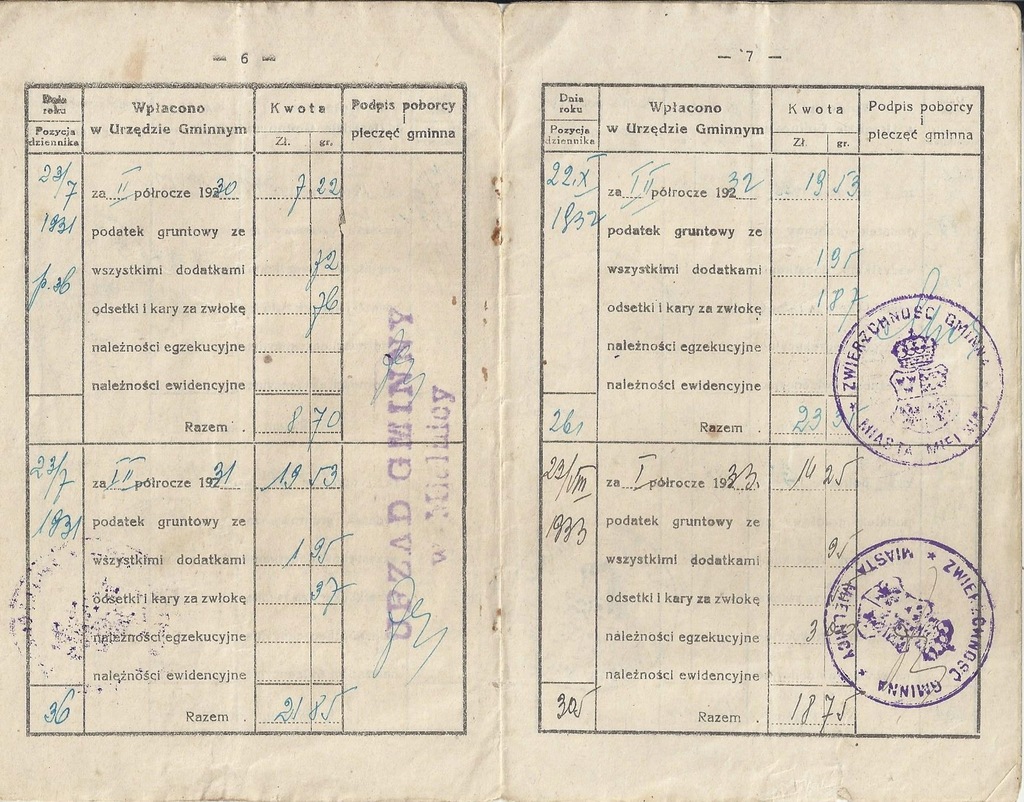 — 6 —
Data roku
Pozycja dziennika
Wpłacono w Urzędzie Gminnym
Kwota
Zł. gr.
Podpis poborcy i pieczęć gminna
23/7 za II półrocze 1930 7 22
1931 podatek gruntowy ze
wszystkimi dodatkami 72
p. 36 odsetki i kary za zwłokę 76
należności egzekucyjne
należności ewidencyjne
Razem . 8 70
23/7 za II półrocze 1931 19 53
1931 podatek gruntowy ze
wszystkimi dodatkami 1 95
odsetki i kary za zwłokę 37
należności egzekucyjne
należności ewidencyjne
36 Razem . 21 85
URZĄD GMINNY
w Mielnicy
— 7 —
Dnia roku
Pozycja dziennika
Wpłacono w Urzędzie Gminnym
Kwota
Zł. gr.
Podpis poborcy i pieczęć gminna
22.X za II półrocze 1932 19 53
1932 podatek gruntowy ze
wszystkimi dodatkami 1 95
odsetki i kary za zwłokę 1 87
należności egzekucyjne
należności ewidencyjne
261 Razem . 23 35
ZWIERZCHNOŚĆ GMINNA MIASTA MIELNICY
23/VIII za I półrocze 1933. 14 25
1933 podatek gruntowy ze
wszystkimi dodatkami 95
odsetki i kary za zwłokę
należności egzekucyjne
należności ewidencyjne
305 Razem . 18 75
ZWIERZCHNOŚĆ GMINNA MIASTA MIELNICY